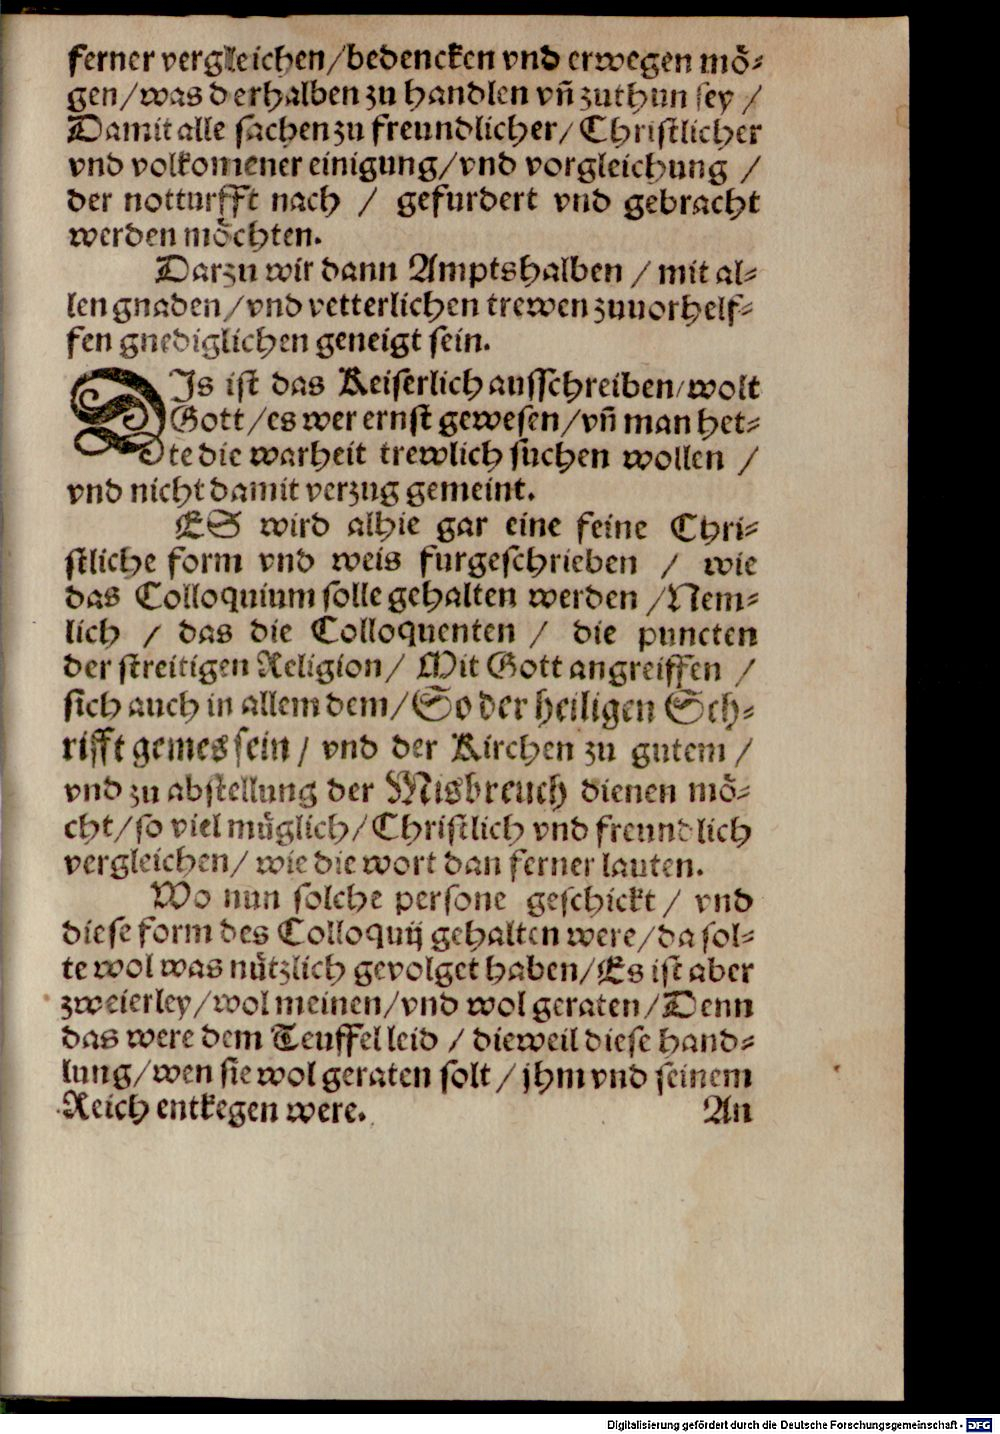 ferner vergleichen/bedencken vnd erwegen mö⸗
gen/was derhalben zu handlen vñ zuthun sey /
Damit alle sachen zu freundlicher/Christlicher
vnd volkomener einigung/vnd vorgleichung /
der notturfft nach / gefurdert vnd gebracht
werden möchten.
Darzu wir dann Amptshalben / mit al⸗
len gnaden/vnd vetterlichen trewen zuuorhelf⸗
fen gnediglichen geneigt sein.
DJs ist das Keiserlich ausschreiben/wolt
Gott/es wer ernst gewesen/vñ man het⸗
te die warheit trewlich suchen wollen /
vnd nicht damit verzug gemeint.
ES wird alhie gar eine feine Chri⸗
stliche form vnd weis furgeschrieben / wie
das Colloquium solle gehalten werden /Nem⸗
lich / das die Colloquenten / die puncten
der streitigen Religion/ Mit Gott angreiffen /
sich auch in allem dem/So der heiligen Sch⸗
rifft gemes sein/ vnd der Kirchen zu gutem /
vnd zu abstellung der Misbreuch dienen mö⸗
cht/so viel müglich/Christlich vnd freundlich
vergleichen/ wie die wort dan ferner lauten.
Wo nun solche persone geschickt / vnd
diese form des Colloquij gehalten were/da sol⸗
te wol was nützlich gevolget haben/Es ist aber
zweierley/wol meinen/vnd wol geraten/Denn
das were dem Teuffel leid / dieweil diese hand⸗
lung/wen sie wol geraten solt / jhm vnd seinem
Reich entkegen were. An
Digitalisierung gefördert durch die Deutsche Forschungsgemeinschaft - DFG